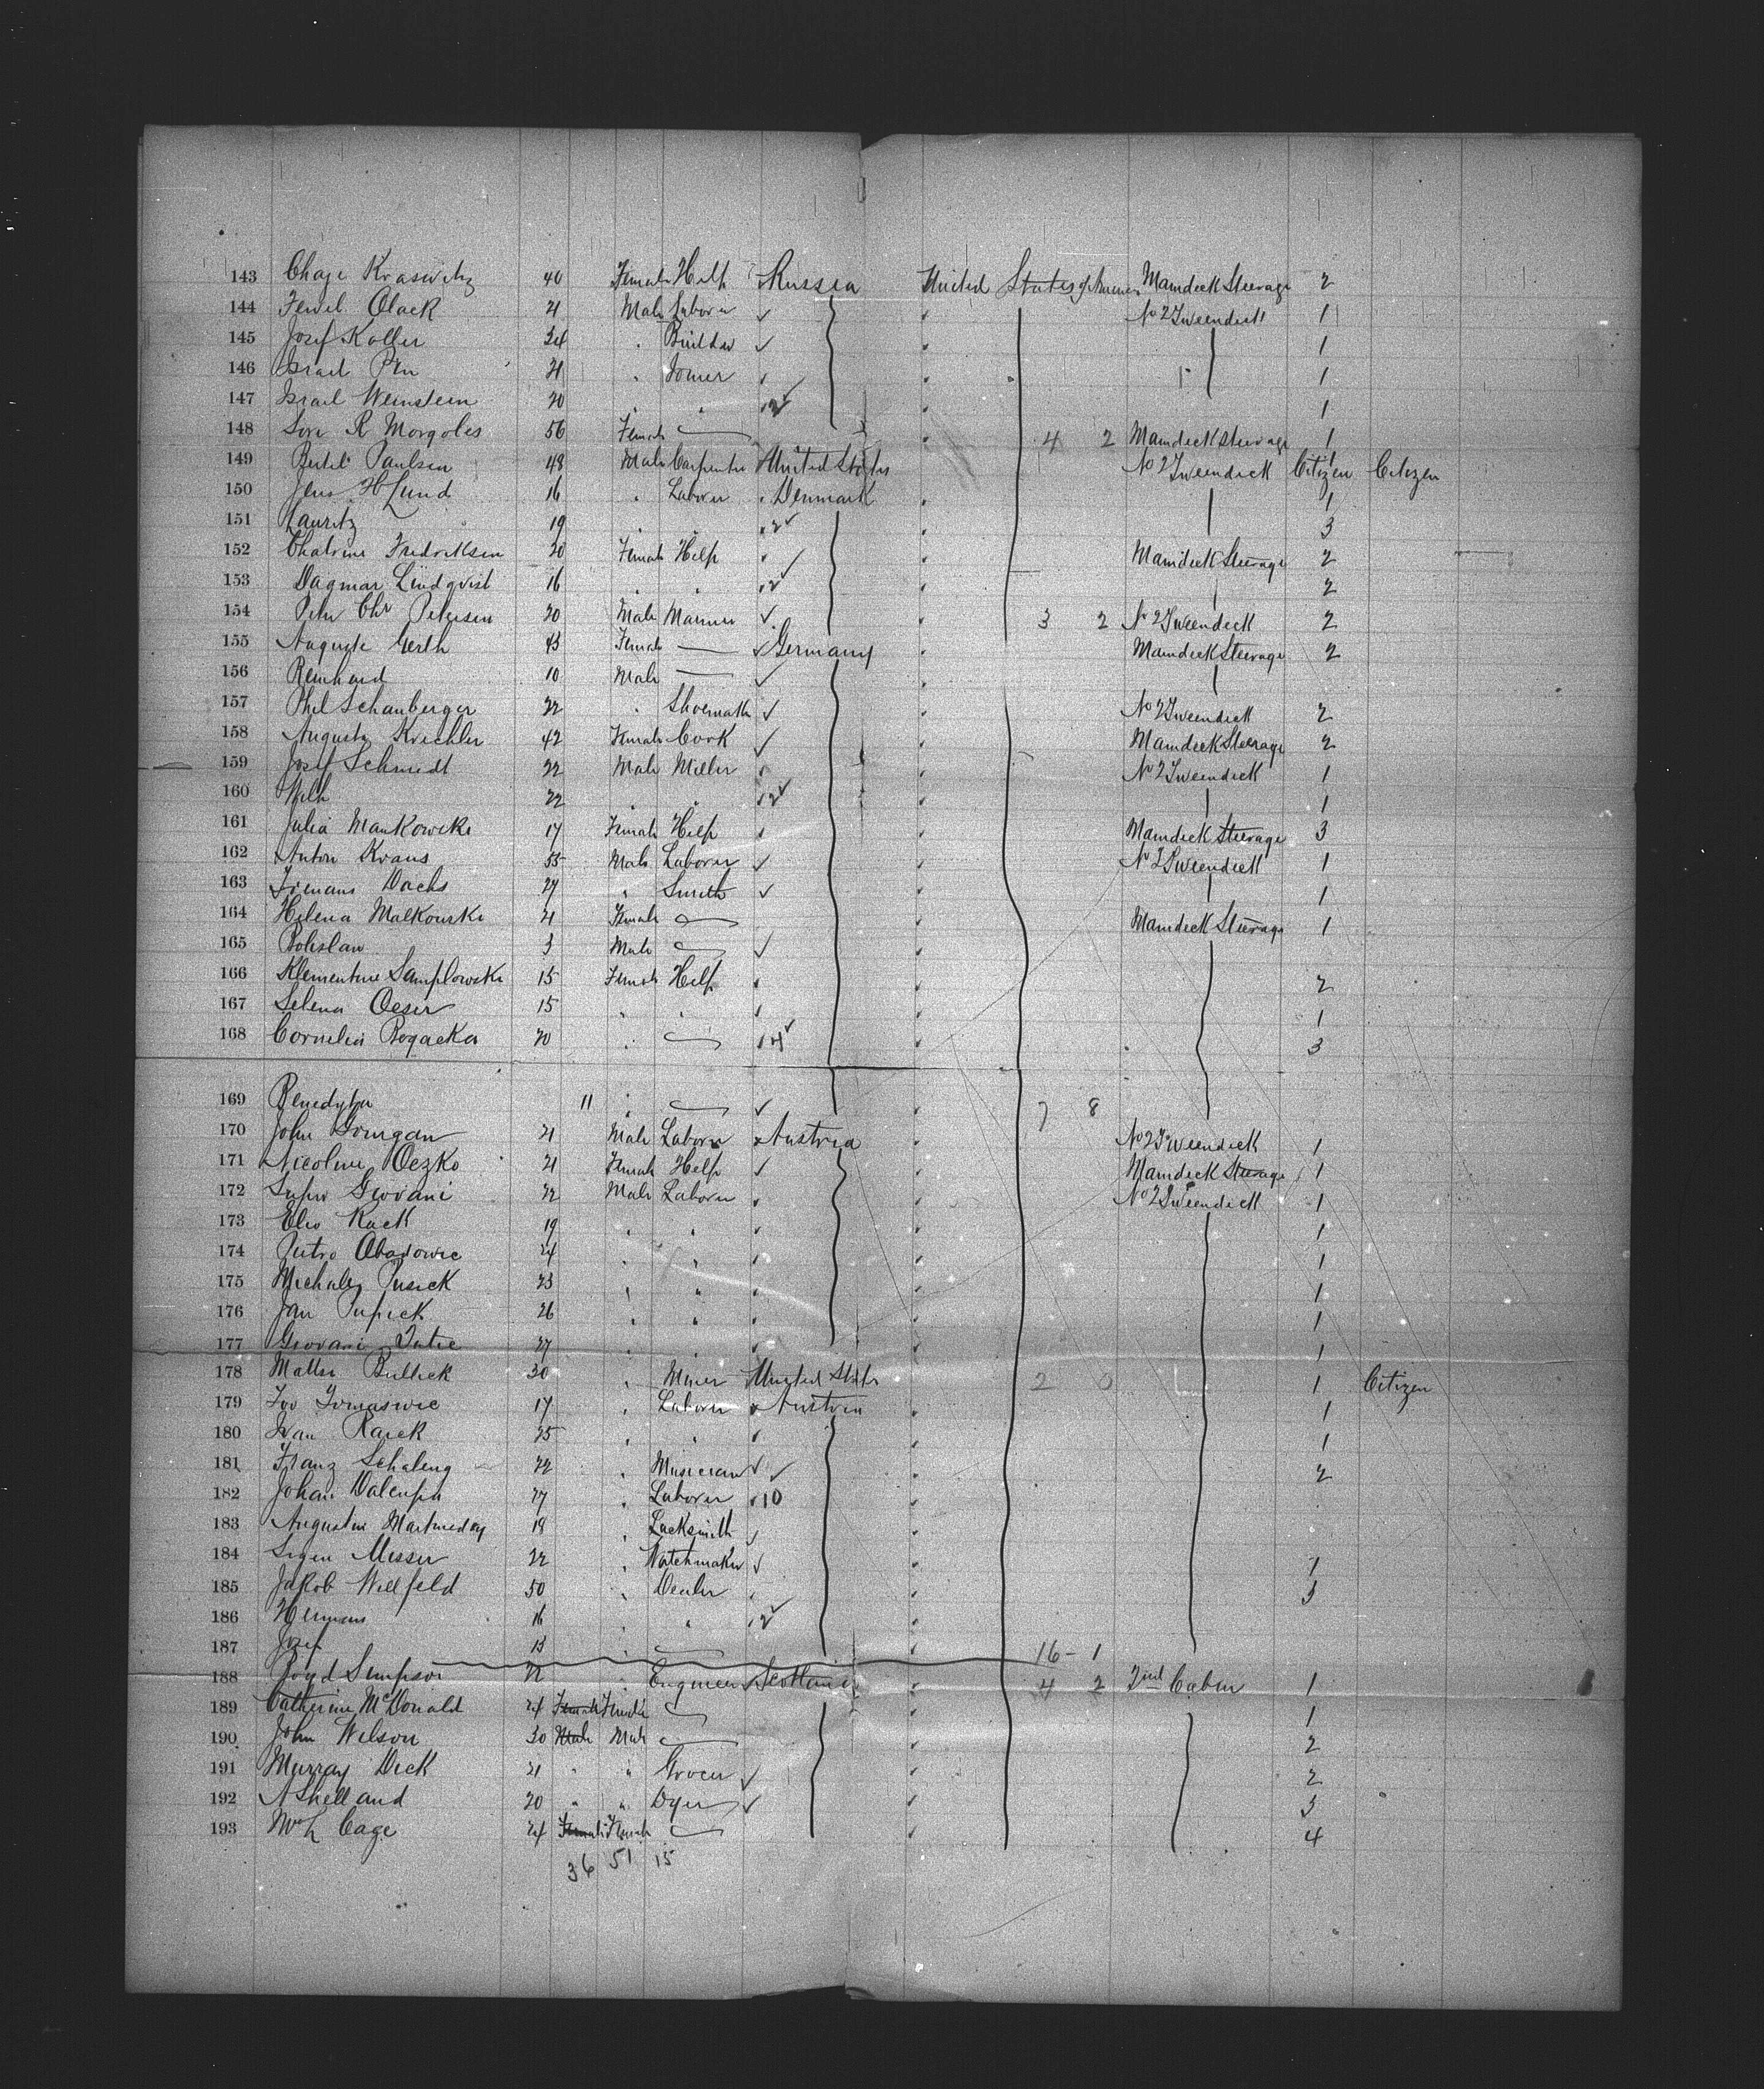 143 Chaje Kraswitz 40 Female Help Russia United States of America Maindeck Steerage 2
144 Fewel Olack 21 Male Laborer No 2 Tweendeck 1
145 Josef Koller 34 " Builder 1
146 Israel 21 " Joiner 1
147 Israel Weinstein 20 " " 2 1
148 Sore R Morgoles 56 Female 4 2 Maindeck Steerage 1
149 Bertel Paulsen 48 Male Carpenter United States No 2 Tweendeck Citizen Citizen
150 Jens H Lund 16 " Laborer Denmark 1
151 Lauritz 19 " " 2 3
152 Chatrine Fredriksen 20 Female Help Maindeck Steerage 2
153 Dagmar Lindqvist 16 " " 2 2
154 Peter Chr Petersen 20 Male Mariner 3 2 No 2 Tweendeck 2
155 Auguste Gerth 43 Female Germany Maindeck Steerage 2
156 Reinhard 10 Male
157 Phil Schauberger 22 " Shoemak No 2 Tweendeck 2
158 Augusta Krechler 42 Female Cook Maindeck Steerage 2
159 Josef Schmidt 22 Male Miller No 2 Tweendeck 1
160 Wilh 22 " " 2 1
161 Julia Mankowski 17 Female Help Maindeck Steerage 3
162 Anton Kraus 55 Male Laborer No 2 Tweendeck 1
163 Dachs 27 " Smith 1
164 Helena Malkowski 21 Female Maindeck Steerage 1
165 Boleslaw 3 Male
166 Klementine Samplowski 15 Female Help 2
167 Selena Oeser 15 " " 1
168 Cornelia Bogacka 20 " 14 3
169 Benedykta 11 " 7 8
170 John 21 Male Laborer Austria No 2 Tweendeck 1
171 Nicoline Oezko 21 Female Help Maindeck Steerage 1
172 Giovani 22 Male Laborer No 2 Tweendeck 1
173 Elio Rack 19 " " 1
174 Pietro Abadowic 24 " " 1
175 Michaly Pusick 23 " " 1
176 Jan Pupick 26 " " 1
177 Giovani 27 " " 1
178 Matter Bullick 30 " Miner United States 2 0 1 Citizen
179 Ivo Tomaswic 17 " Laborer Austria 1
180 Ivan Rarck 25 " " 1
181 Franz Schaleng 22 " Musician 2
182 Johan 27 " Laborer 10
183 Augustin 18 " Locksmith
184 Messer 22 " Watchmaker 1
185 Jakob Willfeld 50 " Dealer 3
186 Hermann 16 " " 2
187 Josef 13 " 16 - 1
188 Boyd Simpson 22 " Engineer Scotland 4 2 2nd Cabin 1
189 Catherine McDonald 24 Female Female 1
190 John Wilson 30 Male Male 2
191 Murray Dick 21 " " Grocer 2
192 A Shelland 20 " " Dyer 3
193 Cage 24 Female Female 4
36 51 15